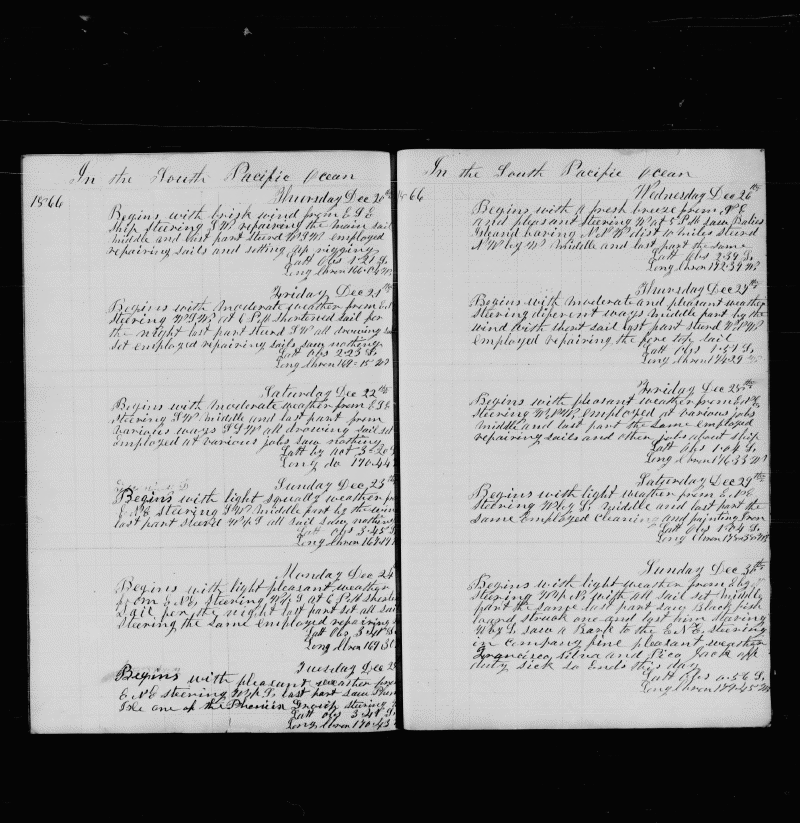 In the South Pacific Ocean
1866
Thursday Dec 20th
Begins with brisk wind from E S E
Ship Steering S W repairing the main sail
Middle and last part Steerd W S W employed
repairing sails and setting up rigging
Latt Obs 1-21 S.
Long Chron 166-
Friday Dec 21st
Begins with moderate weather from E.
Steering W S W at 6 P.M. shortened sail for
the night last part steerd S W all drawing sail
set employed repairing sails saw nothing
Latt Obs 2-23 S.
Long Chron 169-15 W
Saturday Dec 22nd
Begins with moderate weather from E S E
Steering S W middle and last part from
various ways S S W all drawing sail set
employed at various jobs saw nothing
Latt by act 3-20
Long do 170-44
Sunday Dec 23
Begins with light squally weather from
E. N E steering S W middle part by the wind
last part steerd W by S all sail saw nothing
Latt Obs 3-45 S.
Long Chron 169-
Monday Dec 24
Begins with light pleasant weather
from E. N E. steering W by S at 6 P.M. Shortened
Sail for the night last part set all sail
Steering the same employed repairing
Latt Obs 3-
Long Chron 169-
Tuesday Dec 25
Begins with pleasant weather from
E. N E steering W by S. last part saw
Isle one of the Phoenix Group steering
Latt Obs 3-41 S.
Long Chron 170-43
In the South Pacific Ocean
1866
Wednesday Dec 26th
Begins with a fresh breeze from N E
and pleasant steering W at 5 P.M. saw
Island baring N.N.W. dist 10 miles steerd
N W by W Middle and last part the same
Latt Obs 2-39 S.
Long Chron 172-39 W
Thursday Dec 27th
Begins with moderate and pleasant weather
Steering diferent ways Middle part by the
wind with short sail last part steerd W.N.W
employed repairing the fore top sail
Latt Obs 1-51 S.
Long Chron 174-29 W
Friday Dec 28th
Begins with pleasant weather from E.N.E.
Steering W.N.W. employed at various jobs
middle and last part the same employed
repairing sails and other jobs about ship
Latt Obs 1-04 S.
Long Chron 176-33 W
Saturday Dec 29th
Begins with light weather from E. N E
Steering W by S. middle and last part the
same employed cleaning and painting Iron
Latt Obs 1-04 S.
Long Chron
Sunday Dec 30th
Begins with light weather from E by
steering W by N with all sail set middle
part the same last part saw Black fish
loard struck one and lost him steering
W by S. saw a Bark to the E.N.E. steering
in company fine pleasant weather
Francisco Silva and Pico Jack off
duty sick so Ends this day
Latt Obs 0-56 S.
Long Chron 179-45 W